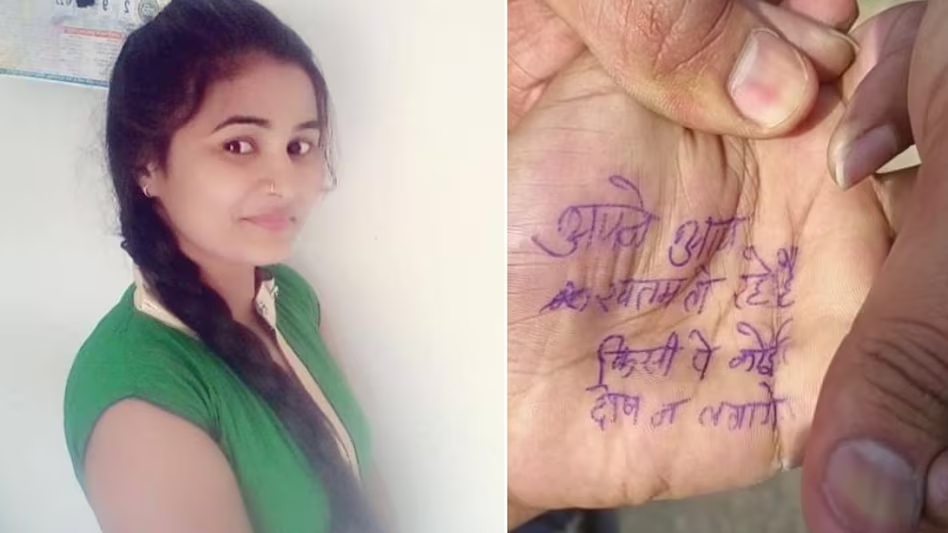 अपने आप
खतम हो रहे है
किसी पे कोई
दोष न लगाये